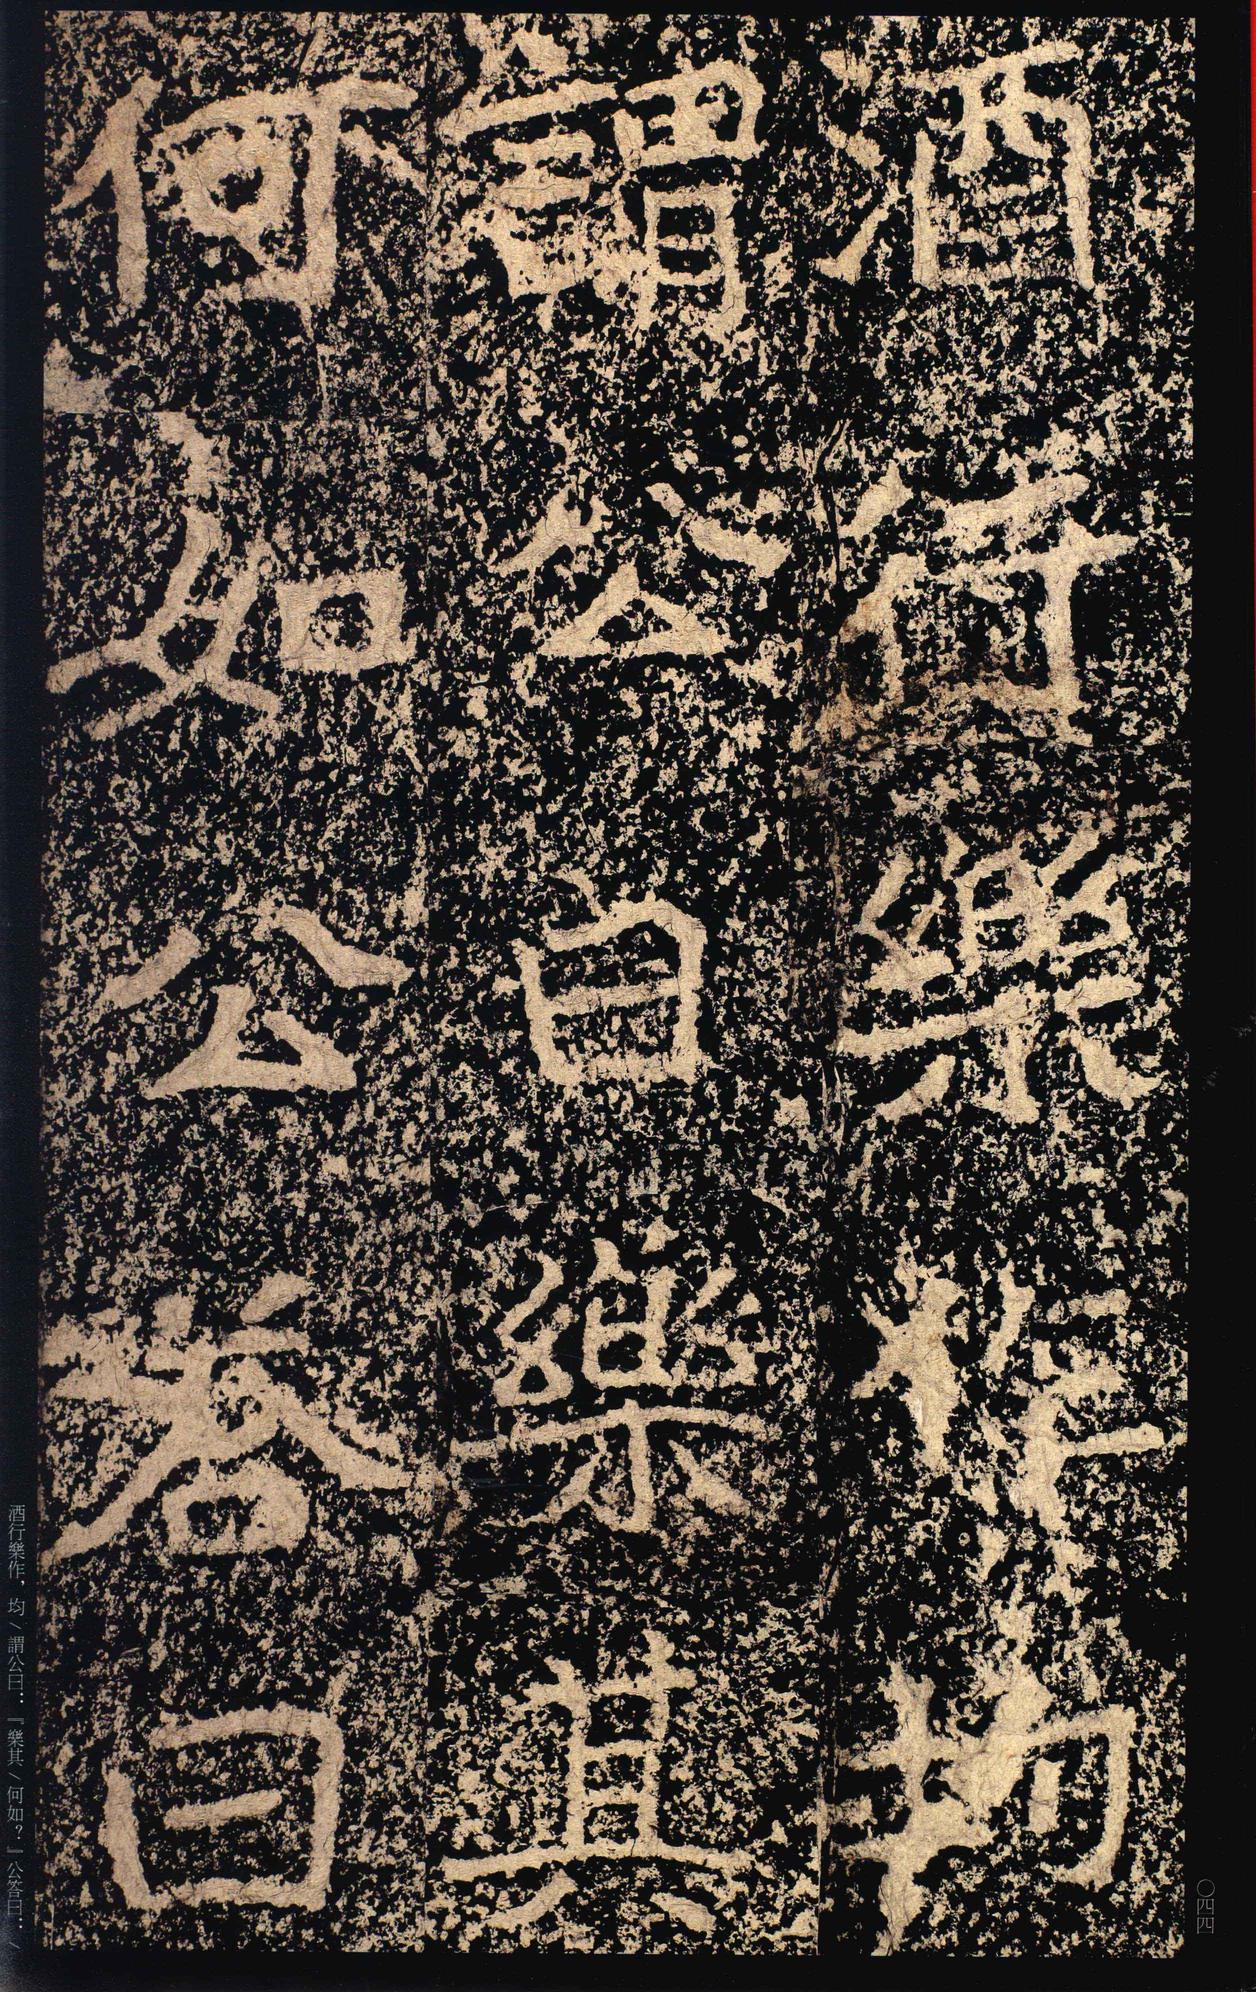 酒行樂作均
謂公曰樂其
何如公答曰
酒行樂作，均╲謂公曰：『樂其╲何如？』公答曰：╲
〇四四